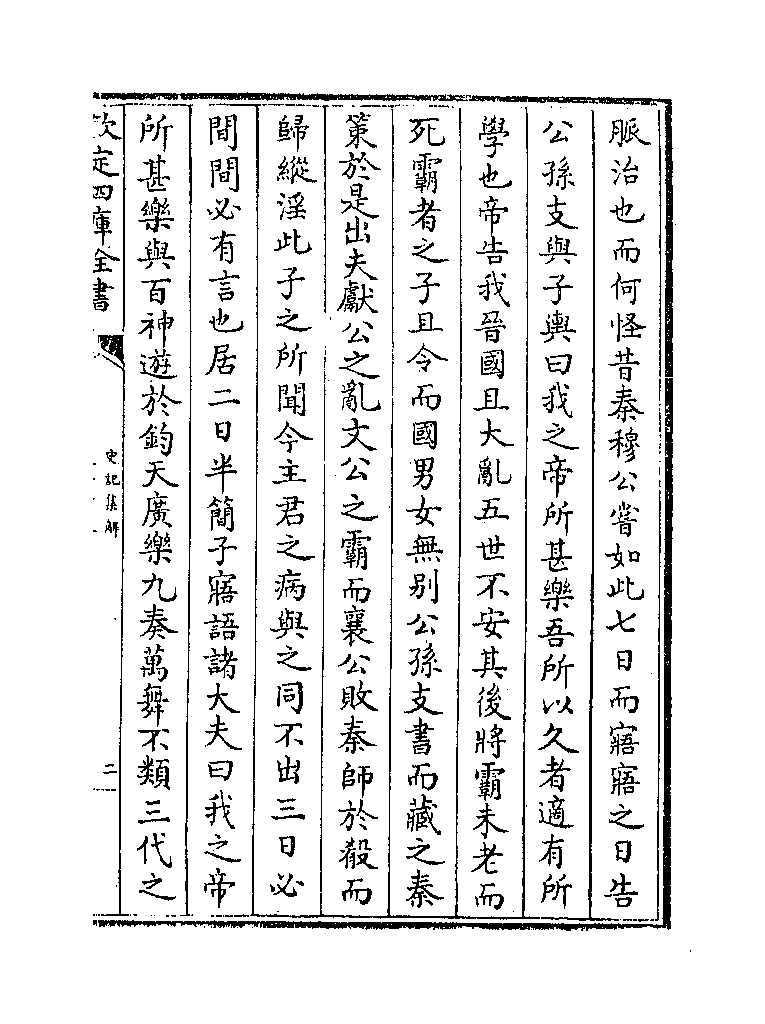 脈治也而何怪昔秦穆公嘗如此七日而寤寤之日告
公孫支與子輿曰我之帝所甚樂吾所以久者適有所
學也帝告我晉國且大亂五世不安其後將霸未老而
死霸者之子且令而國男女無别公孫支書而藏之秦
策於是出夫獻公之亂文公之霸而襄公敗秦師於殽而
歸縱淫此子之所聞今主君之病與之同不出三日必
間間必有言也居二日半簡子寤語諸大夫曰我之帝
所甚樂與百神遊於鈞天廣樂九奏萬舞不類三代之
欽定四庫全書
史記集解
二